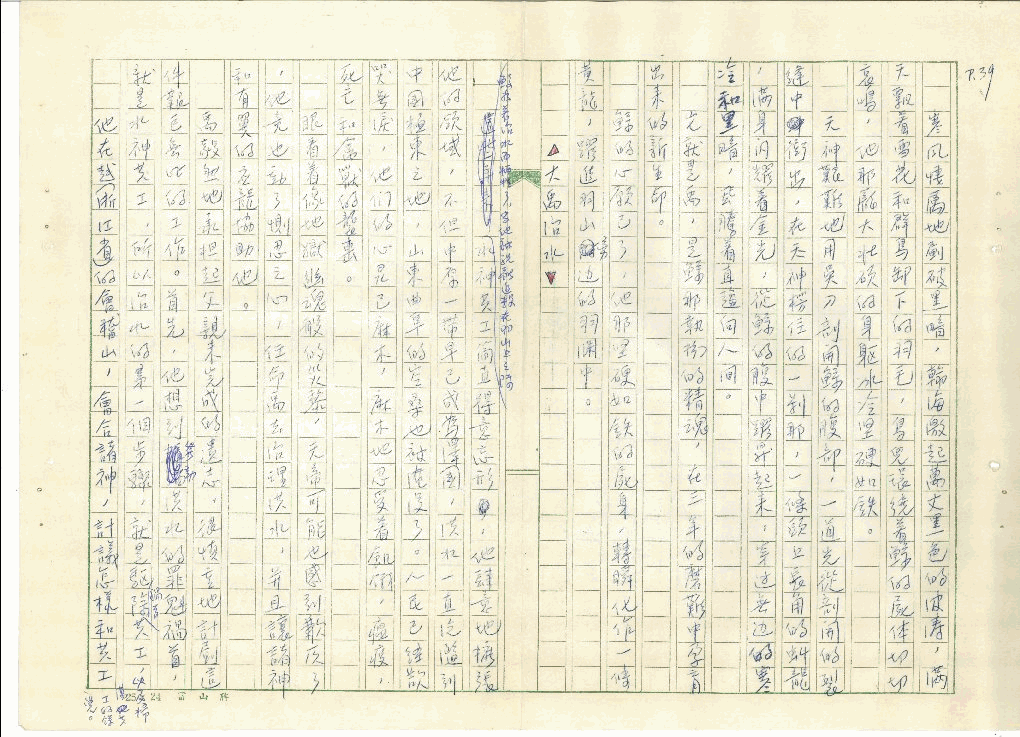 P.39
寒風悽厲地劃破黑暗，翰海激起萬丈黑色的波濤，滿
天飄着雪花和群鳥卸下的羽毛，鳥兒環繞着鯀的屍体切切
哀鳴，他那龐大壯碩的身軀水冷堅硬如鐵。
天神艱難地用吳刀剖開鯀的腹部，一道光從剖開的裂
縫中衝出，在天神楞住的一剎那，一條頭上長角的虯龍
，滿身閃耀着金光，從鯀的腹中躍昇起來，穿過無邊的寒
冷和黑暗，飛騰着直證向人間。
尤就是禹，是鯀那執拗的精魂，在三年的磨難中孕育
出來的新生命。
鯀的心願已了，他那堅硬如鐵的屍身，轉瞬化作一條
黃龍，躍進羽山旁邊的羽淵中。
大禹治水
鯀為着治水而犧牲了
水神共工簡直得意忘形，他肆意地擴張
他的領域，不但中原一帶早已成為澤國，洪水一直氾濫到
中國極東之地，山東曲阜的空桑也被淹沒了。人民已經欲
哭無淚，他們的心是已麻木，麻木地忍受着飢餓，瘟疫，
死亡和禽獸的襲擊。
眼看着像地獄幽魂般的災黎，天帝可能也感到歉疚了
，他竟也動了惻忍之心，任命禹去治理洪水，并且讓諸神
和有翼的應龍協助他。
禹毅然地承担起父親未完成的遺志，很慎重地計劃這
件艱巨無比的工作。首先，他想到洪水的罪魁禍首，
就是水神共工，所以治水的第一個步驟，就是驅除共工，
他在浙江省的會稽山，會合諸神，計議怎樣和共工
25×24 富山牌